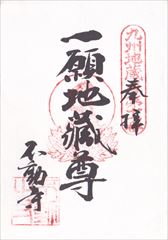 奉拝
一願地蔵尊
不動寺
九州地蔵